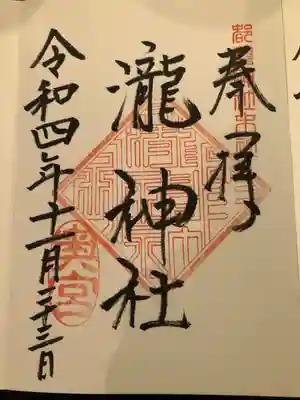 奉拝
瀧神社
令和四年十一月二十三日
奥宮